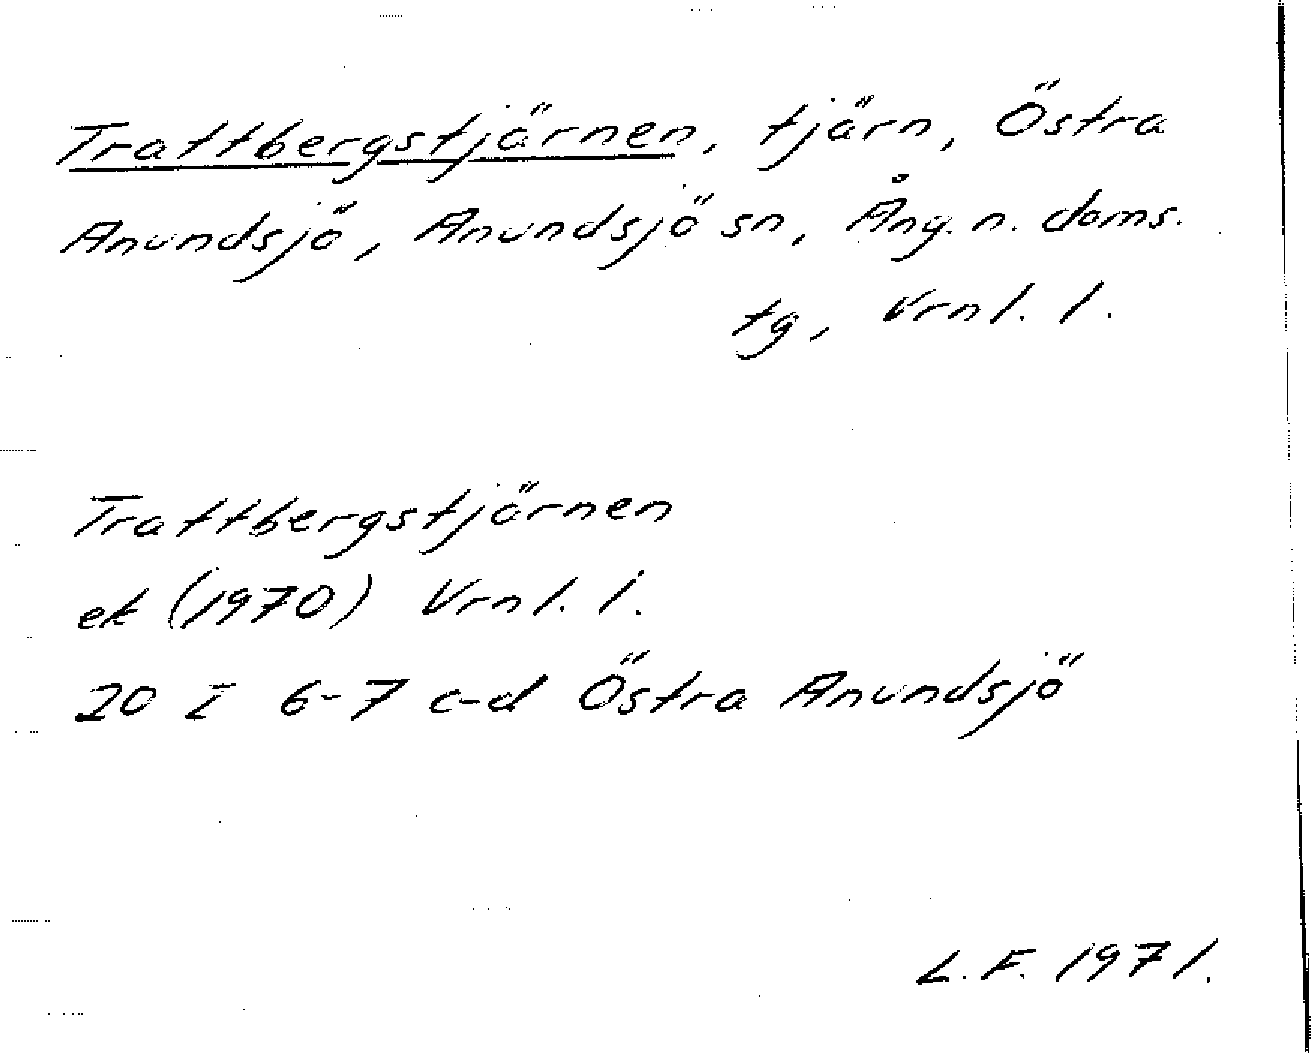 Trattbergstjärnen, tjärn, Östra
Anundsjö, Anundsjö sn, Ång. n. doms.
tg, Vrnl. l.
Trattbergstjärnen
ek (1970) Vrnl. l.
20 I 6-7 c-d Östra Anundsjö
L. F. 1971.